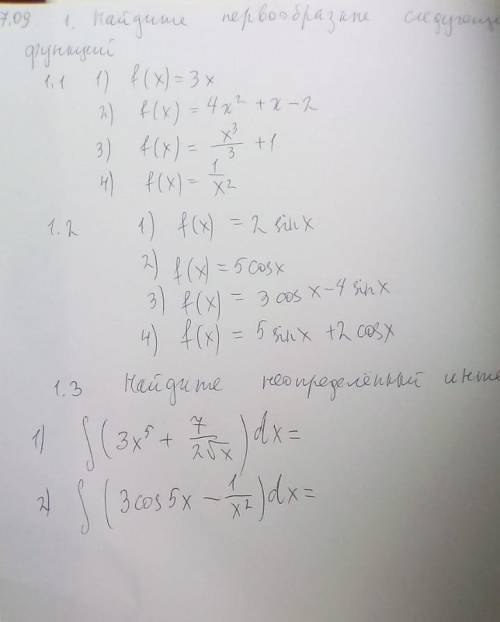 7.09 1. Найдите первообразные следующ
функций
1.1 1) f(x) = 3x
2) f(x) = 4x² + x - 2
3) f(x) = x³/3 + 1
4) f(x) = 1/x²
1.2 1) f(x) = 2 sinx
2) f(x) = 5 cosx
3) f(x) = 3 cos x - 4 sinx
4) f(x) = 5 sinx + 2 cosx
1.3 Найдите неопределённый инте
1) ∫(3x⁵ + 7/(2√x))dx =
2) ∫(3cos5x - 1/x²)dx =